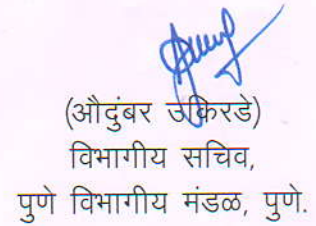 (औदुंबर उकिरडे)
विभागीय सचिव,
पुणे विभागीय मंडळ, पुणे.